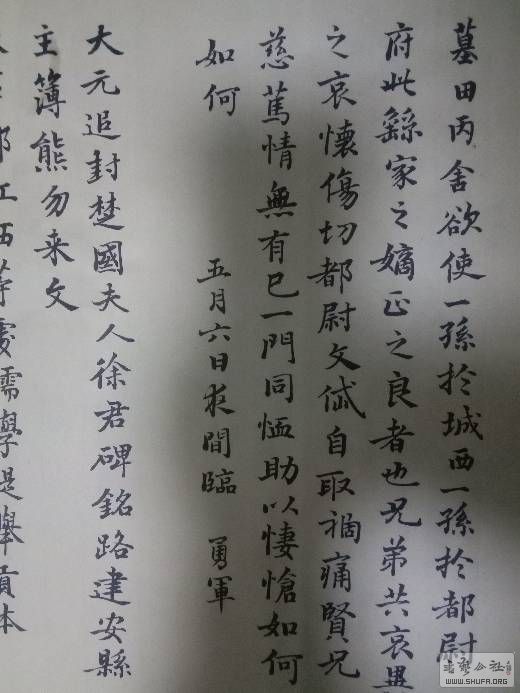 墓田丙舍欲使一孫於城西一孫於都尉
府此繇家之嫡正之良者也兄弟共哀異
之哀懷傷切都尉文岱自取禍痛賢兄
慈篤情無有已一門同恤助以悽愴如何
如何 五月六日夜間臨 勇軍
大元追封楚國夫人徐君碑銘路建安縣
主簿熊勿来文
郎江西等處儒學提舉貢本
书艺公社
WWW.SHUFA.ORG